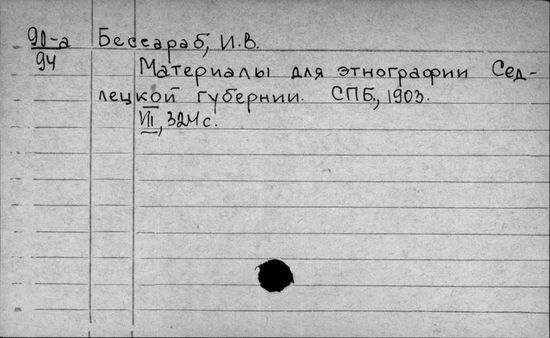 90-а Бессараб, И.В.
94 Материалы для этнографии Сед-
лецкой губернии. СПБ., 1903.
VIII, 324 с.